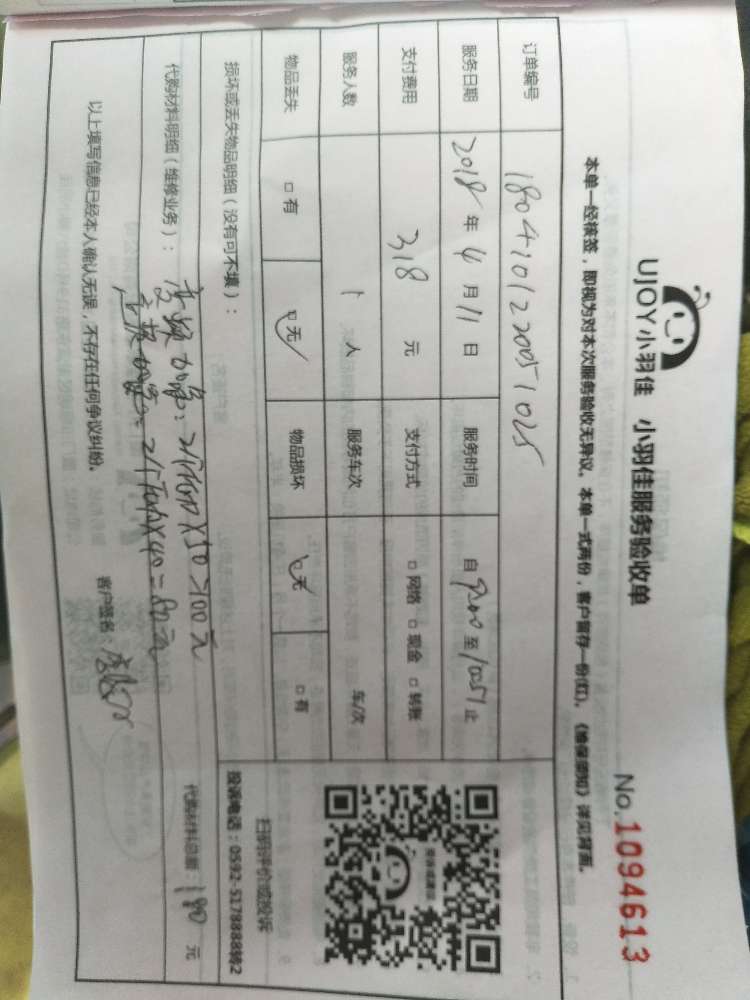 UJOY小羽佳 小羽佳服务验收单
No.1094613
本单一经核签，即视为对本次服务验收无异议。本单一式两份，客户留存一份(红)。《维保须知》详见背面。
订单编号 1804101220051025
服务日期 2018年4月11日 服务时间 自9:00至10:51止
支付费用 318元 支付方式 □网络 □现金 □转账
服务人数 1人 服务车次 车/次
物品丢失 □有 □无 物品损坏 □无 □有
扫码评价或投诉
投诉电话：0592-5178888转2
损坏或丢失物品明细（没有可不填）：
代购材料明细（维修业务）： 2个 X50=100元
代购材料总额：180元
2个 X40=80元
以上填写信息已经本人确认无误，不存在任何争议纠纷。 客户签名：